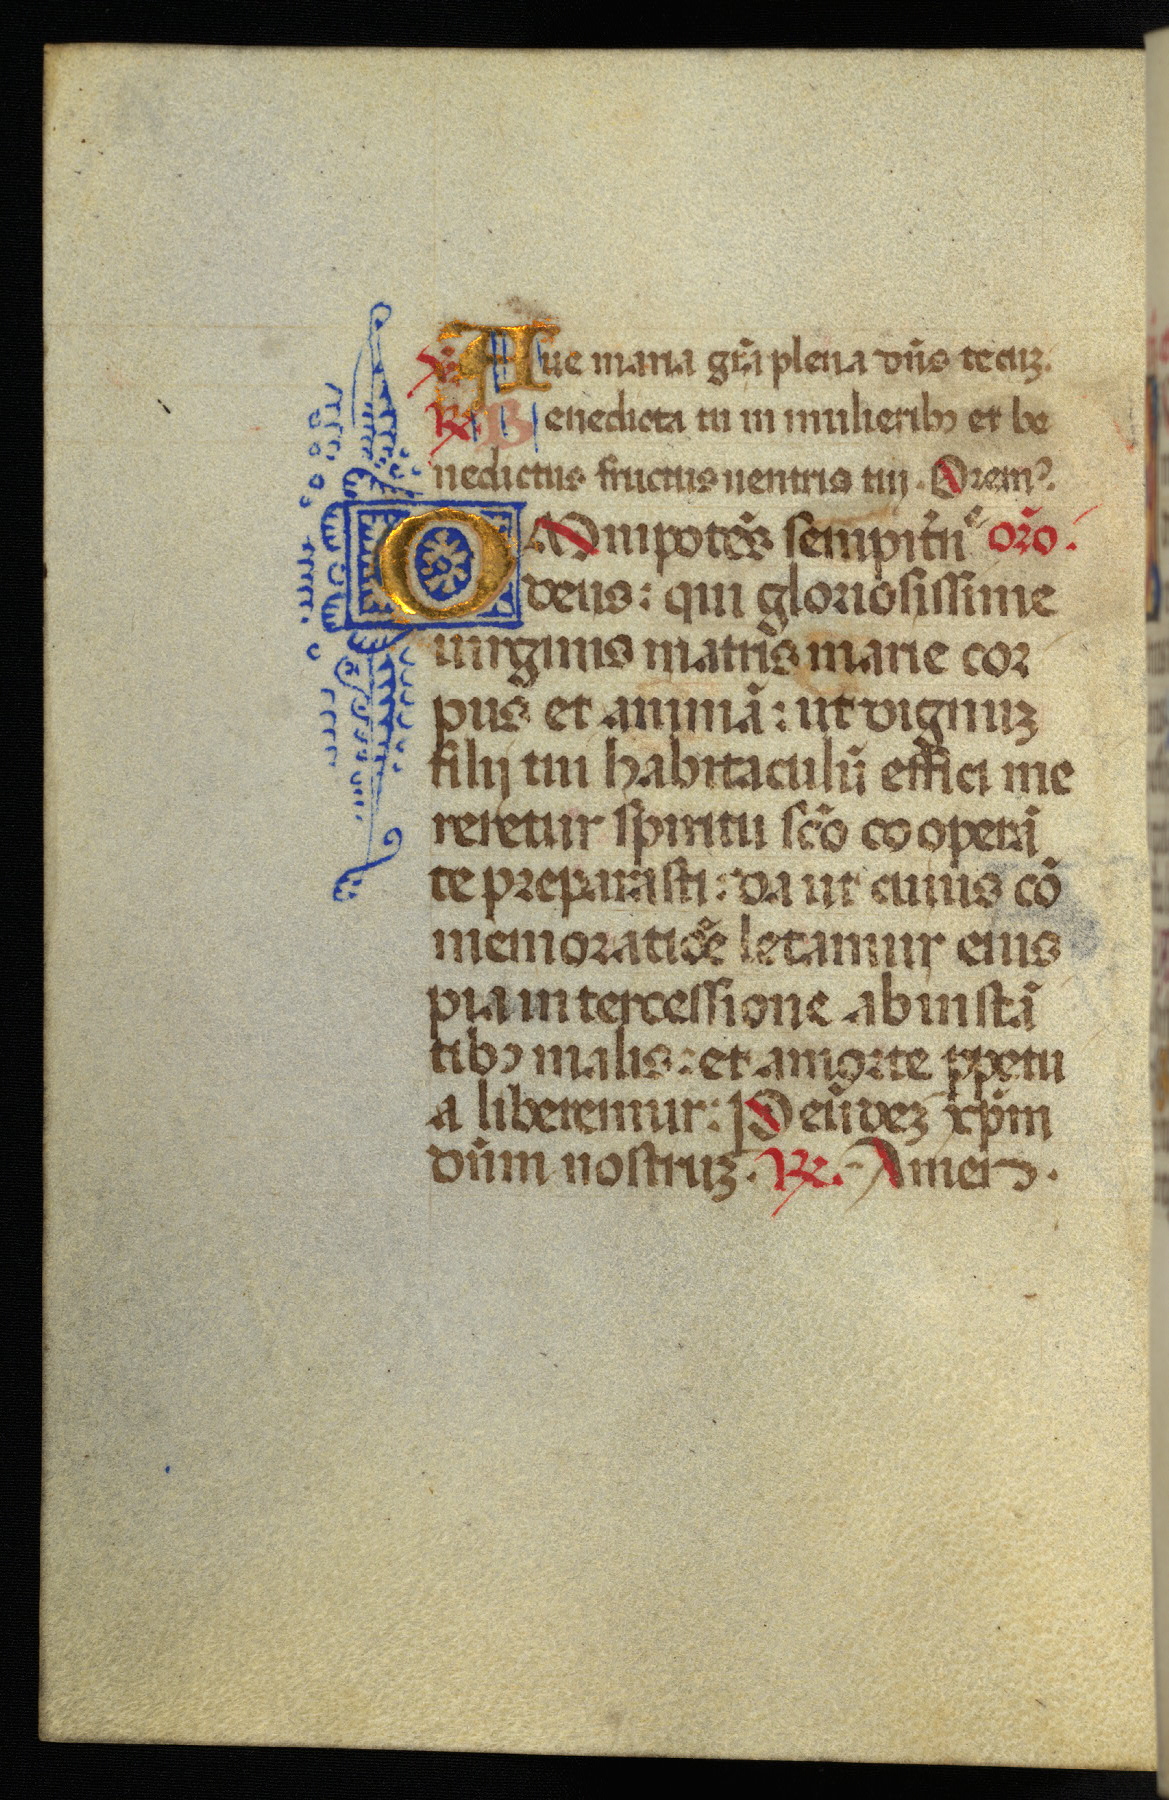 ℣. Aue maria gr̃a plena dñs tecuꝫ.
℟. Benedicta tu in mulieribꝰ et be
nedictus fructus uentris tui. Oremꝰ.
OMnipotẽs sempitẽrne or̃o.
deus: qui gloriosissime
uirginis matris marie cor
pus et animã: ut dignuꝫ
filij tui habitaculũ effici me
reretur spiritu scõ co operã
te preparasti: da ut cuius cõ
memoratiõe letamur eius
pia intercessione ab instã
tibꝰ malis: et a morte ꝑpetu
a liberemur: Per eũdeꝫ xp̃m
dñm nostruꝫ. ℟. Amen.